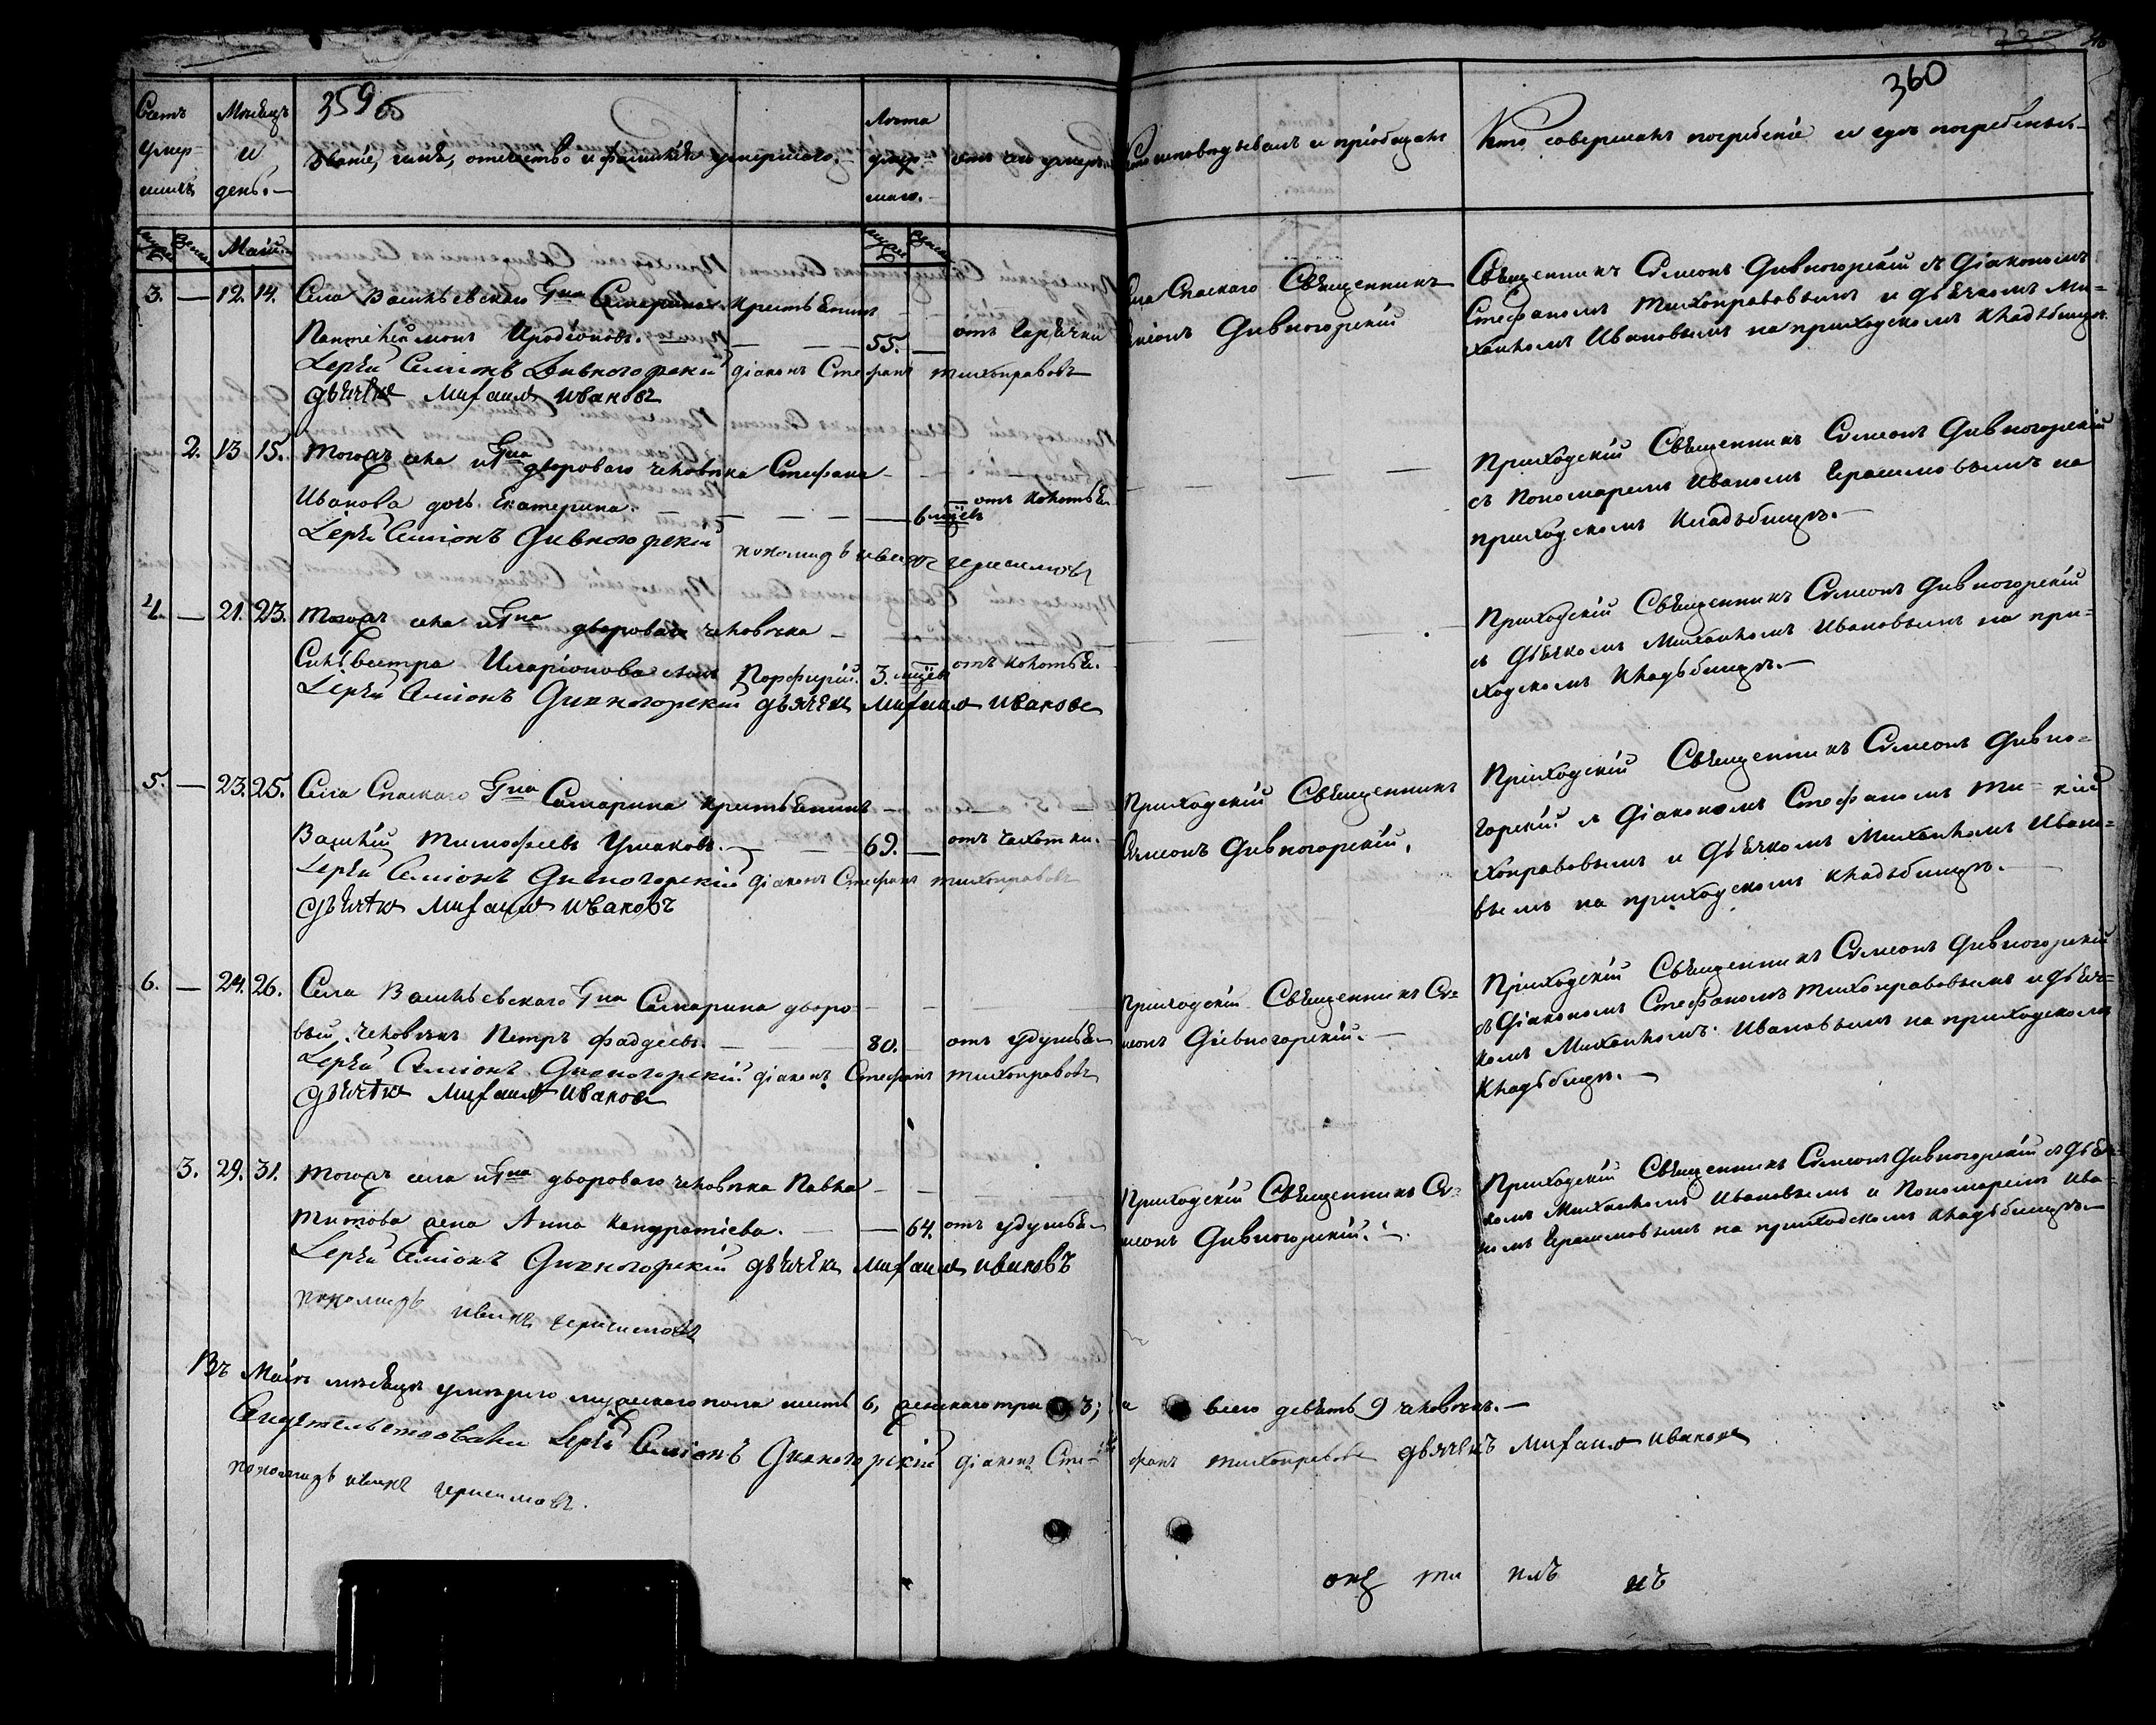 359 об
360
Счетъ умер-шихъ
Мѣсяцъ и день.
Званіе, имя, отечество и фамилія умершаго.
Лѣта умер-шаго.
отъ чего умеръ.
Кто исповѣдывалъ и пріобщалъ
Кто совершалъ погребеніе и гдѣ погребены.
Маій.
3. — 12. 14. Села Васильевскаго Гна Самарина крестьянинъ
Пантелеймонъ Иродіоновъ. 55. — отъ горячки
Іерей Симіонъ Дивногорскій діаконъ Стефанъ Тихонравовъ
дьячекъ Михаилъ Ивановъ
Села Спаскаго Священникъ
Симеонъ Дивногорскій
Священникъ Симеонъ Дивногорскій съ Діакономъ
Стефаномъ Тихонравовымъ и дьячкомъ Ми-
хаиломъ Ивановымъ на приходскомъ кладбищѣ.
2. 13 15. Тогожъ села и Гна двороваго человѣка Стефана
Иванова дочь Екатерина. 6 мцевъ отъ колотья
Іерей Симіонъ Дивногорскій пономарь Иванъ Герасимовъ
Приходскій Священникъ Симеонъ Дивногорскій
съ Пономаремъ Иваномъ Герасимовымъ на
приходскомъ кладбищѣ.
4. — 21. 23. Тогожъ села и Гна двороваго человѣка
Сильвестра Иларіонова сынъ Порфирій. 3. мцевъ отъ колотья.
Іерей Симіонъ Дивногорскій дьячекъ Михаилъ Ивановъ
Приходскій Священникъ Симеонъ Дивногорскій
съ Дьячкомъ Михаиломъ Ивановымъ на при-
ходскомъ кладбищѣ.
5. — 23. 25. Села Спаскаго Гна Самарина крестьянинъ
Василій Тимофеевъ Ушаковъ. 69. — отъ чахотки.
Іерей Симіонъ Дивногорскій діаконъ Стефанъ Тихонравовъ
дьячекъ Михаилъ Ивановъ
Приходскій Священникъ
Симеонъ Дивногорскій.
Приходскій Священникъ Симеонъ Дивно-
горскій съ Діакономъ Стефаномъ Ти-
хонравовымъ и Дьячкомъ Михаиломъ Ивано-
вымъ на приходскомъ кладбищѣ.
6. — 24. 26. Села Васильевскаго Гна Самарина дворо-
вый человѣкъ Петръ Фаддеевъ. 80. отъ удушья
Іерей Симіонъ Дивногорскій діаконъ Стефанъ Тихонравовъ
дьячекъ Михаилъ Ивановъ
Приходскій Священникъ Си-
меонъ Дивногорскій.
Приходскій Священникъ Симеонъ Дивногорскій
съ Діакономъ Стефаномъ Тихонравовымъ и Дьяч-
комъ Михаиломъ Ивановымъ на приходскомъ
кладбищѣ.
3. 29. 31. Тогожъ села и Гна двороваго человѣка Павла
Титова жена Анна Кондратіева. — 64. отъ удушья
Іерей Симіонъ Дивногорскій дьячекъ Михаилъ Ивановъ
пономарь Иванъ Герасимовъ
Приходскій Священникъ Си-
меонъ Дивногорскій.
Приходскій Священникъ Симеонъ Дивногорскій съ Дьяч-
комъ Михаиломъ Ивановымъ и Пономаремъ Ива-
номъ Герасимовымъ на приходскомъ кладбищѣ
Въ Маіѣ мѣсяцѣ умерло мужескаго пола шесть 6, женскаго три 3; а всего девять 9 человѣкъ.
Свидѣтельствовали Іерей Симіонъ Дивногорскій діаконъ Сте-фанъ Тихонравовъ дьячекъ Михаилъ Ивановъ
пономарь Иванъ Герасимовъ.